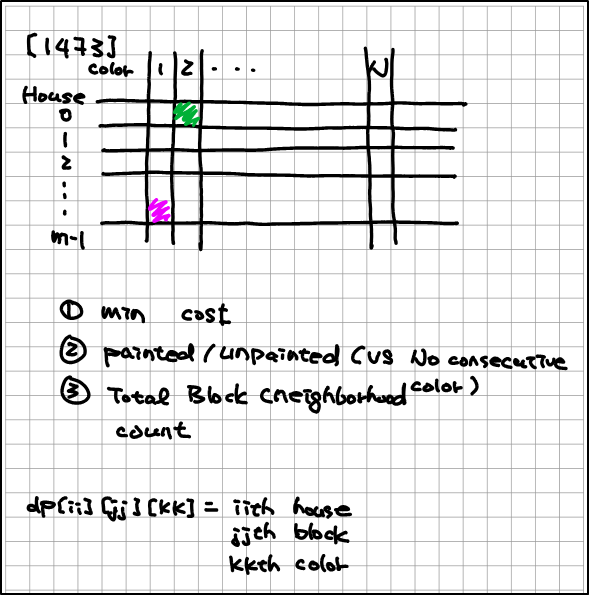 [1473]
color 1 2 . . . N
House
0
1
2
:
:
m-1
① min cost
② painted/unpainted (vs No consecutive color)
③ Total Block (neighborhood)
count
dp[ii][jj][kk] = iith house
jjth block
kkth color